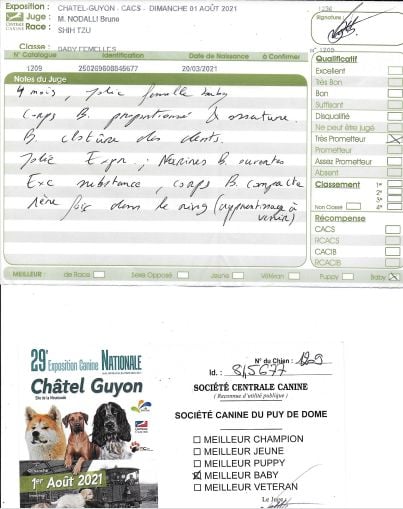 Exposition : CHATEL-GUYON - CACS - DIMANCHE 01 AOÛT 2021
Juge : M. NODALLI Bruno
Race : SHIH TZU
Classe : BABY FEMELLES
Signature :
N° Catalogue Identification Date de Naissance à Confirmer
1209 250269608845677 20/03/2021
N° 1209
Notes du Juge
4 mois, jolie femelle baby
Corps B. proportionné & ossature.
B. clôture des dents.
Jolie Expr.; Narines B. ouvertes
Exc substance, corps B. compacte
1ère fois dans le ring (apprentissage à
venir)
Qualificatif
Excellent
Très Bon
Bon
Suffisant
Disqualifié
Ne peut être jugé
Très Prometteur
Prometteur
Assez Prometteur
Absent
Classement
1er
2e
3e
4e
Non Classé
Récompense
CACS
RCACS
CACIB
RCACIB
MEILLEUR : de Race Sexe Opposé Jeune Vétéran Puppy Baby
29e Exposition Canine NATIONALE
Châtel Guyon
Dimanche
1er Août 2021
N° du Chien : 1209
Id. : 845677
SOCIÉTÉ CENTRALE CANINE
( Reconnue d'utilité publique )
SOCIÉTÉ CANINE DU PUY DE DOME
MEILLEUR CHAMPION
MEILLEUR JEUNE
MEILLEUR PUPPY
MEILLEUR BABY
MEILLEUR VETERAN
Le Juge